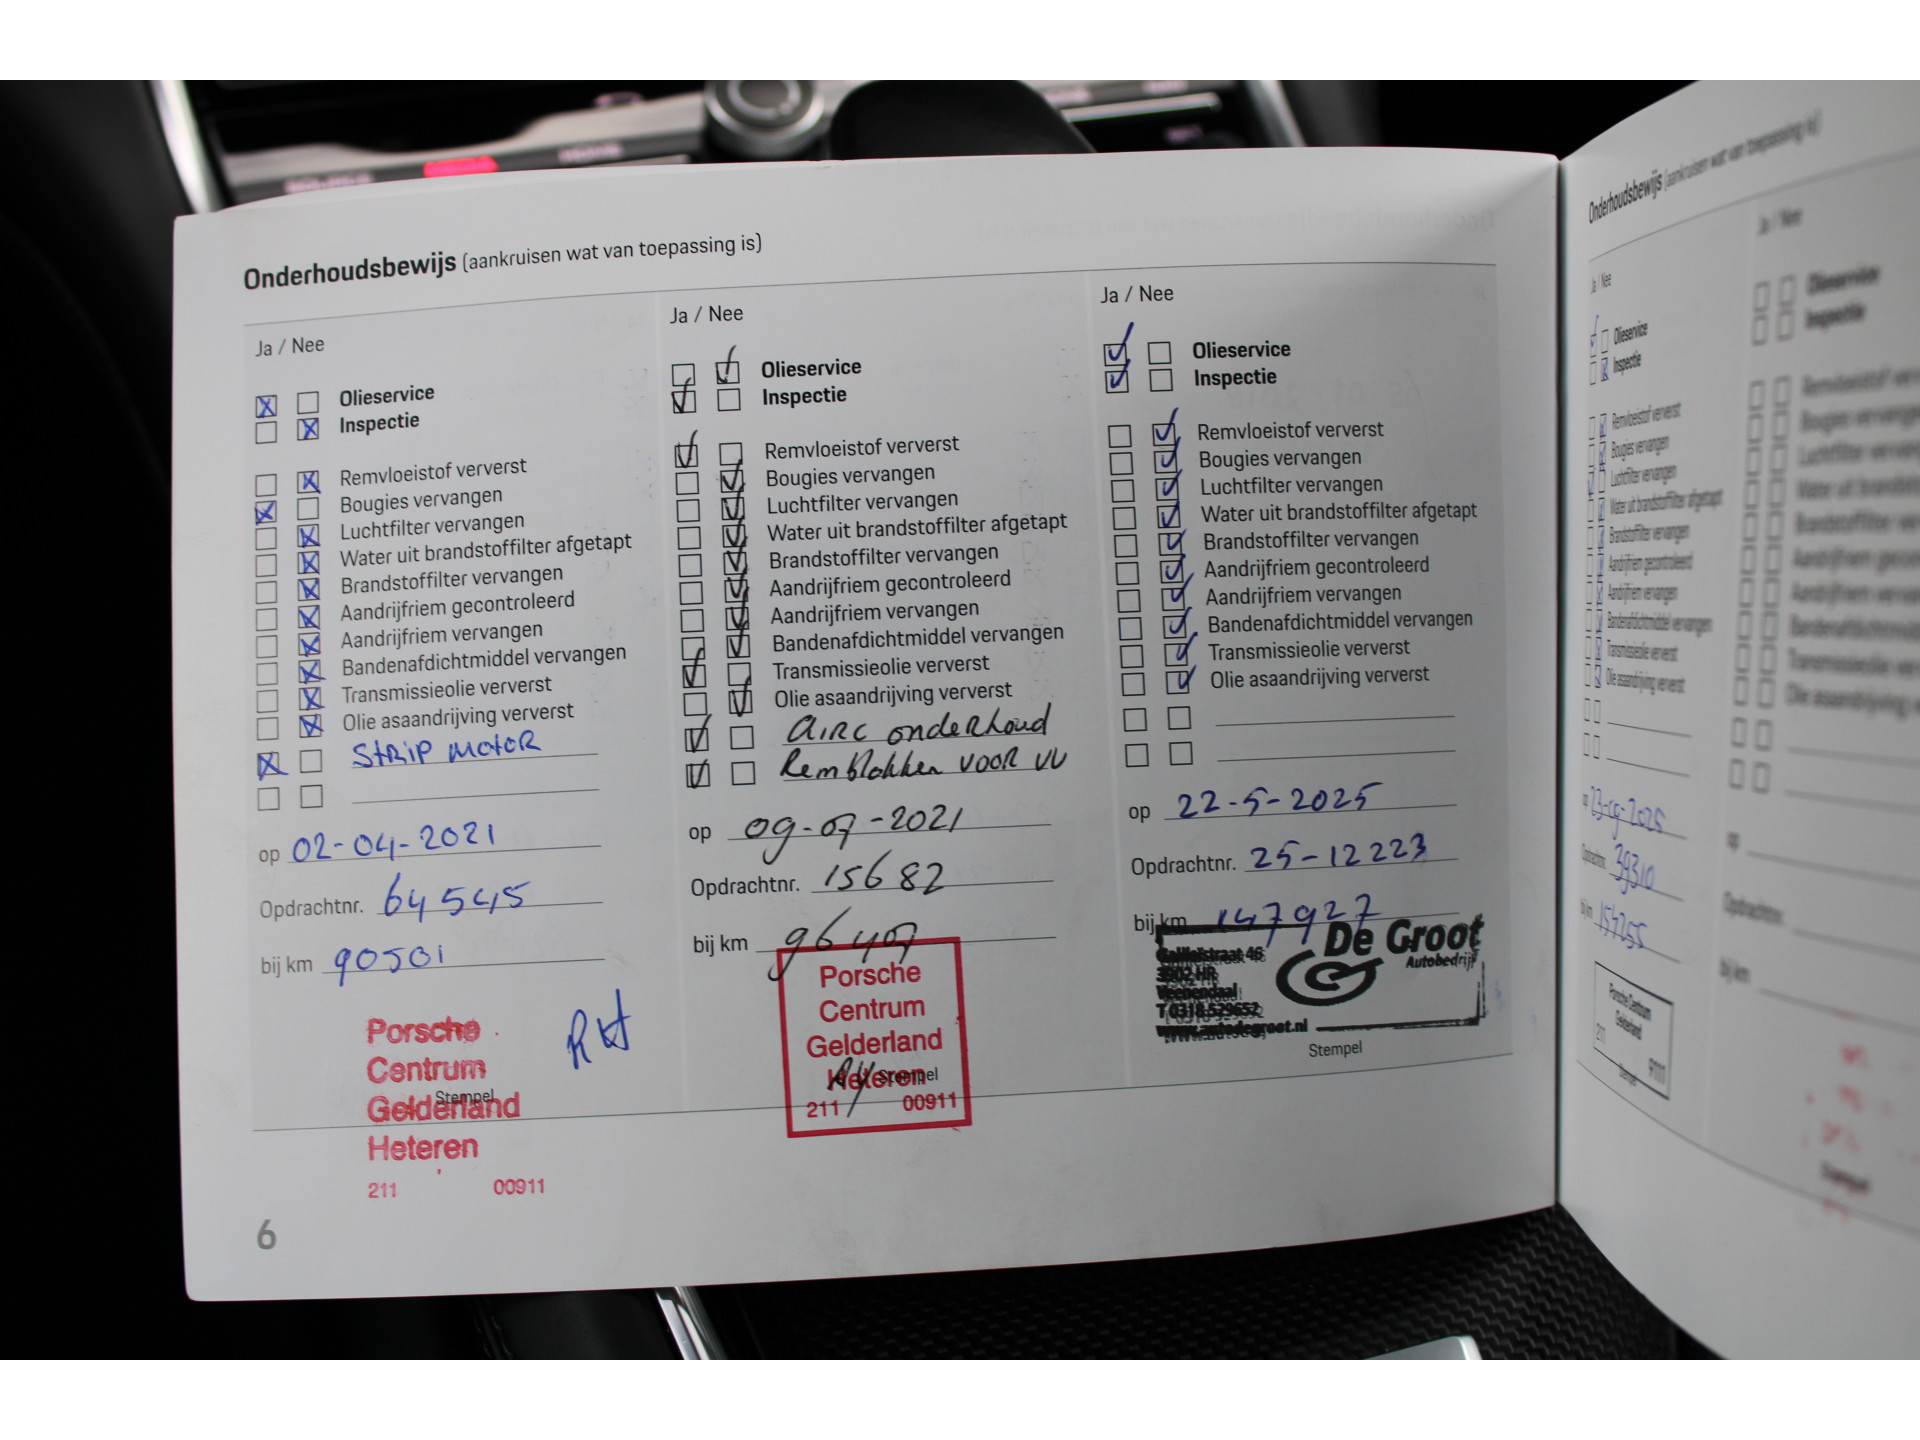 Onderhoudsbewijs (aankruisen wat van toepassing is)
Ja / Nee
Olieservice
Inspectie
Remvloeistof ververst
Bougies vervangen
Luchtfilter vervangen
Water uit brandstoffilter afgetapt
Brandstoffilter vervangen
Aandrijfriem gecontroleerd
Aandrijfriem vervangen
Bandenafdichtmiddel vervangen
Transmissieolie ververst
Olie asaandrijving ververst
Strip motor
op 02-04-2021
Opdrachtnr. 64545
bij km 90501
Porsche
Centrum
Gelderland
Heteren
Stempel
211 00911
RH
6
Ja / Nee
Olieservice
Inspectie
Remvloeistof ververst
Bougies vervangen
Luchtfilter vervangen
Water uit brandstoffilter afgetapt
Brandstoffilter vervangen
Aandrijfriem gecontroleerd
Aandrijfriem vervangen
Bandenafdichtmiddel vervangen
Transmissieolie ververst
Olie asaandrijving ververst
Airc onderhoud
Remblokken voor VV
op 09-07-2021
Opdrachtnr. 15682
bij km 96407
Porsche
Centrum
Gelderland
Heteren
Stempel
211 00911
Ja / Nee
Olieservice
Inspectie
Remvloeistof ververst
Bougies vervangen
Luchtfilter vervangen
Water uit brandstoffilter afgetapt
Brandstoffilter vervangen
Aandrijfriem gecontroleerd
Aandrijfriem vervangen
Bandenafdichtmiddel vervangen
Transmissieolie ververst
Olie asaandrijving ververst
op 22-5-2025
Opdrachtnr. 25-12223
bij km 147927
De Groot
Autobedrijf
Galileïstraat 46
3902 HR
Veenendaal
T 0318 529652
www.autodegroot.nl
Stempel
Onderhoudsbewijs (aankruisen wat van toepassing is)
Ja / Nee
Olieservice
Inspectie
Remvloeistof ververst
Bougies vervangen
Luchtfilter vervangen
Water uit brandstoffilter afgetapt
Brandstoffilter vervangen
Aandrijfriem gecontroleerd
Aandrijfriem vervangen
Bandenafdichtmiddel vervangen
Transmissieolie ververst
Olie asaandrijving ververst
op 23-09-2025
Opdrachtnr. 39310
bij km
Porsche Centrum
Gelderland
211
Stempel
Ja / Nee
Olieservice
Inspectie
Remvloeistof ververst
Bougies vervangen
Luchtfilter vervangen
op
Opdrachtnr.
bij km
Stempel